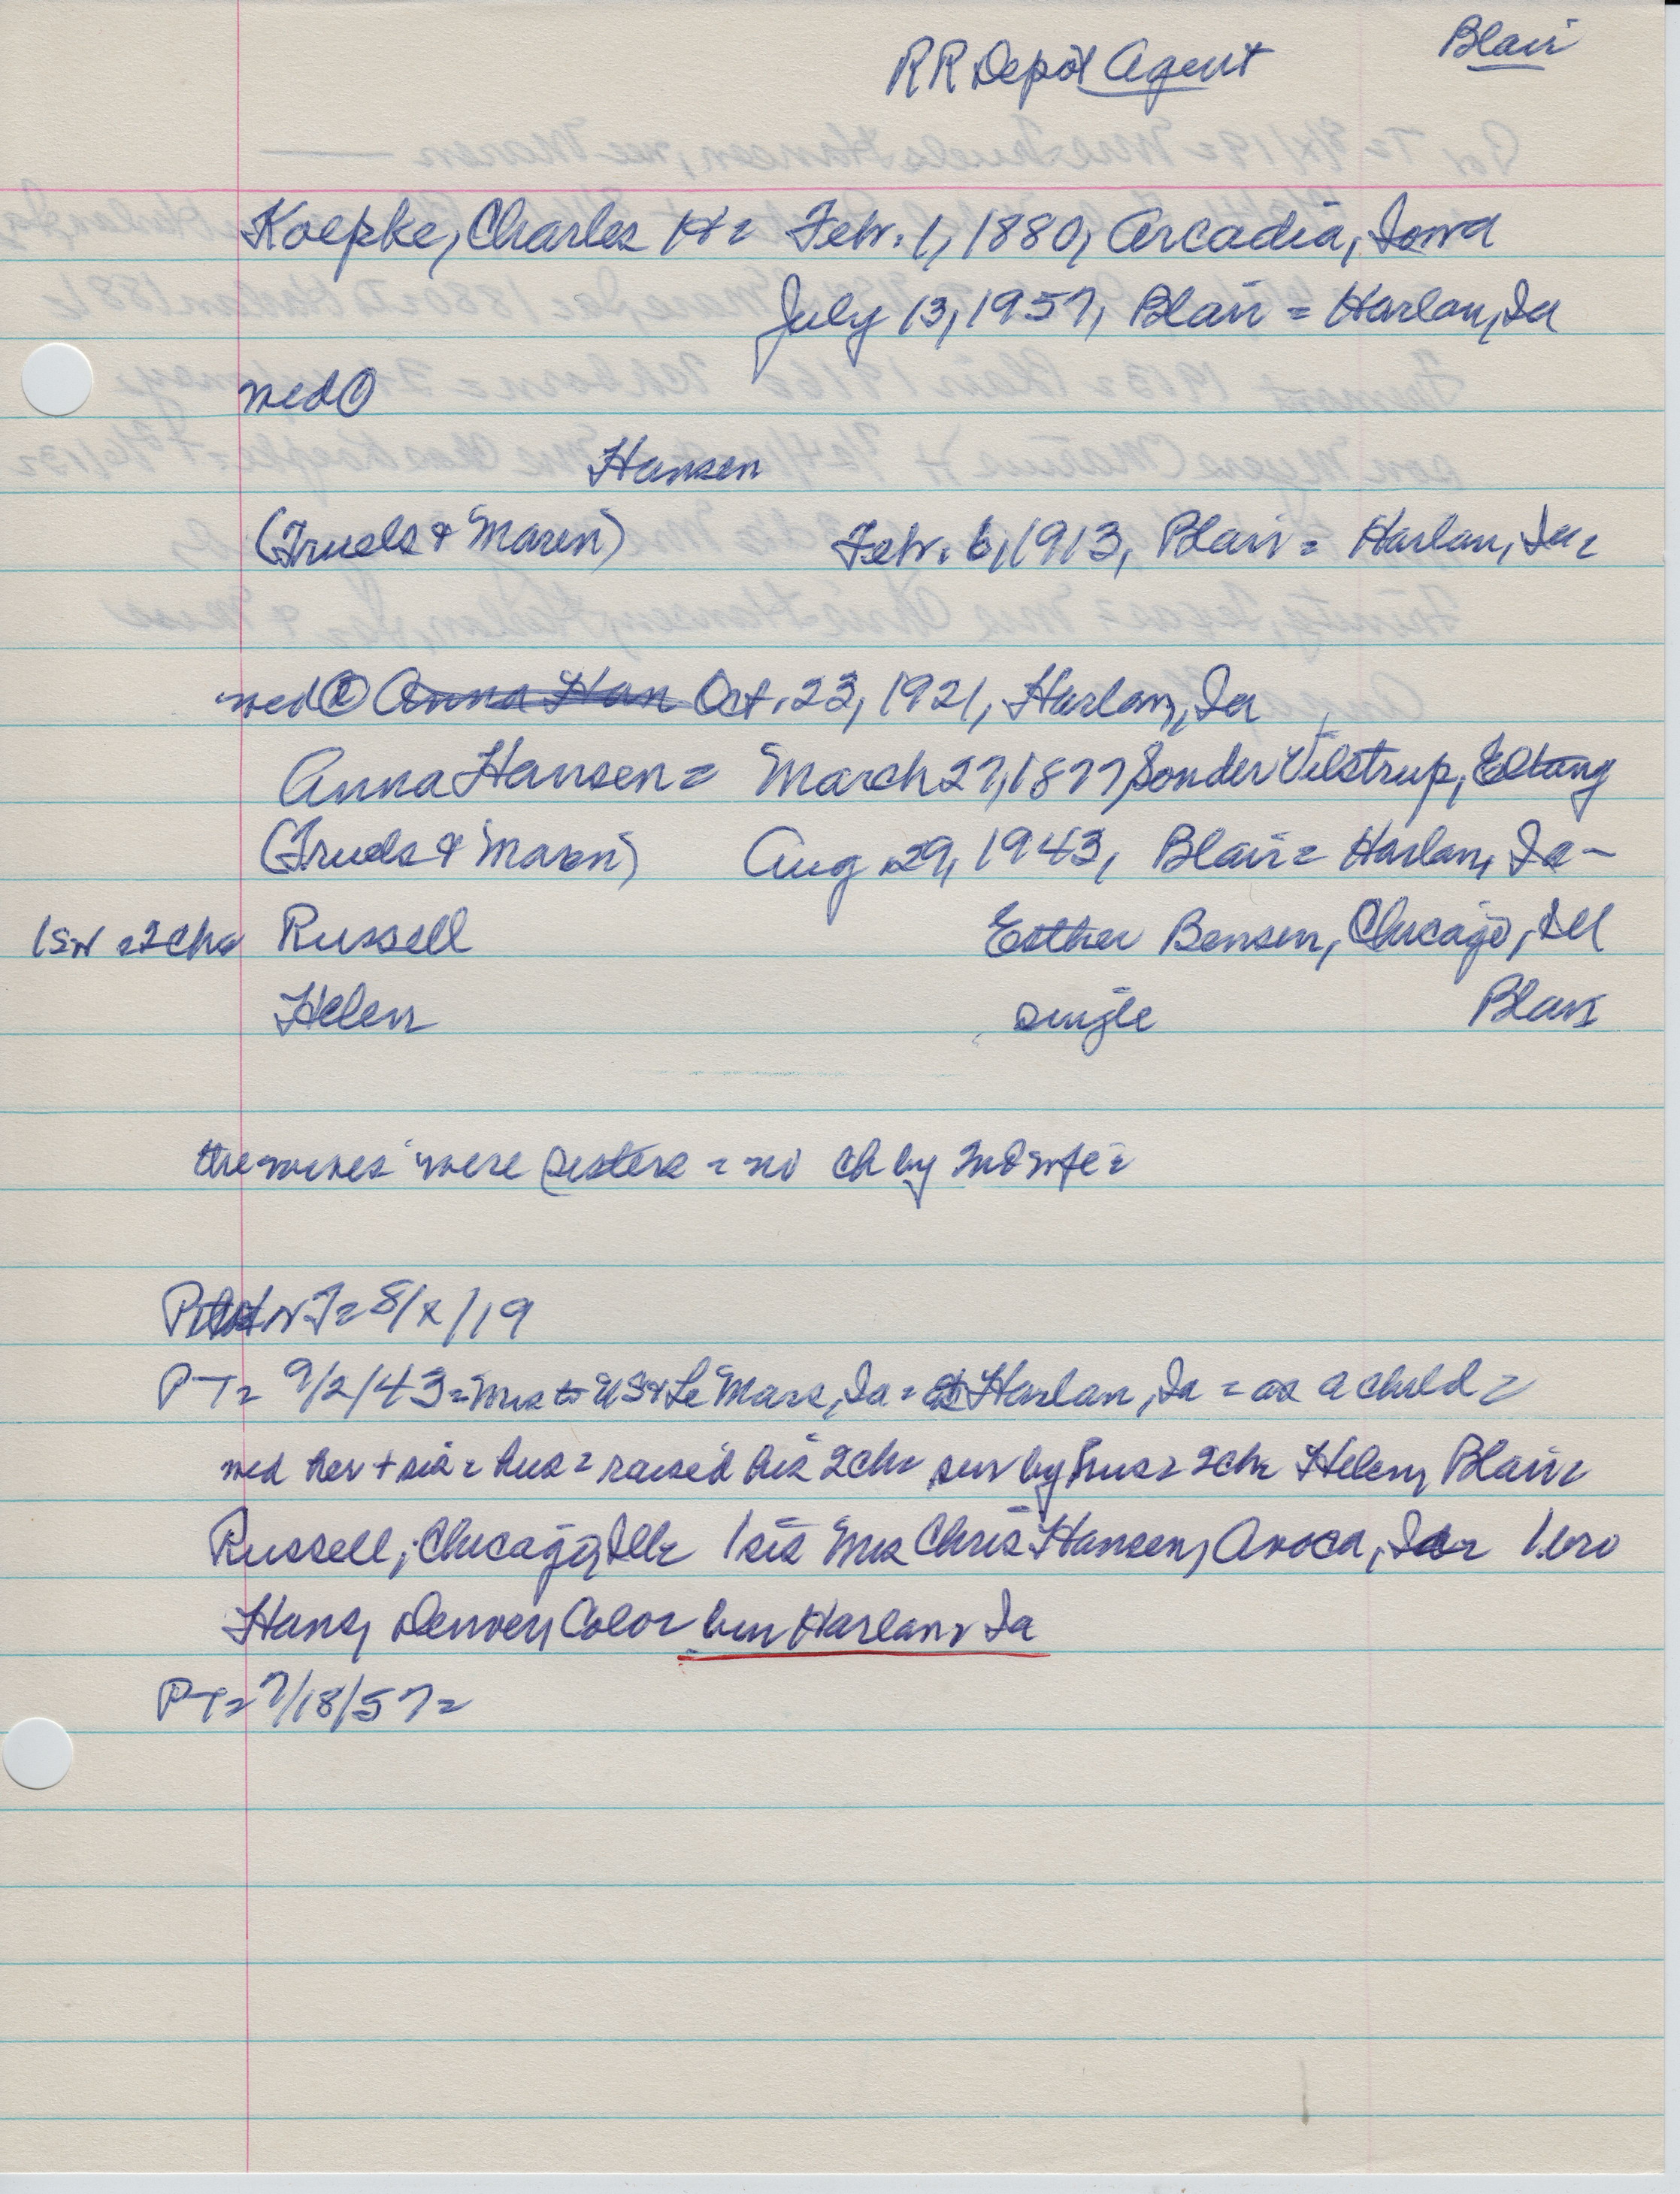 Blair
RR Depot Agent
Koepke, Charles H= Febr. 1, 1880, Arcadia, Iowa
July 13, 1957, Blair = Harlan, Ia
med ①
Hansen
(Truels & Maren) Febr. 6, 1913, Blair = Harlan, Ia=
med ② Anna Han Oct. 23, 1921, Harlan, Ia
Anna Hansen = March 27, 1877, Sonder Vilstrup, Eltang
(Truels & Maren) Aug 29, 1943, Blair = Harlan, Ia -
1st W = 2 ch= Russell Esther Bensen, Chicago, Ill
Helen single Blair
the wives were sisters = no ch by 2nd wife =
T= 8/x/19
PT= 9/2/43 = to US & Le Mars, Ia = Harlan, Ia = as a child =
med her + sis = hus = raised his 2 ch= sur by hus = 2 ch= Helen, Blair=
Russell, Chicago, Ill= 1 sis Mrs Chris Hansen, Avoca, Ia= 1 bro
Hans, Denver, Colo= bur Harlan, Ia
PT= 7/18/57=